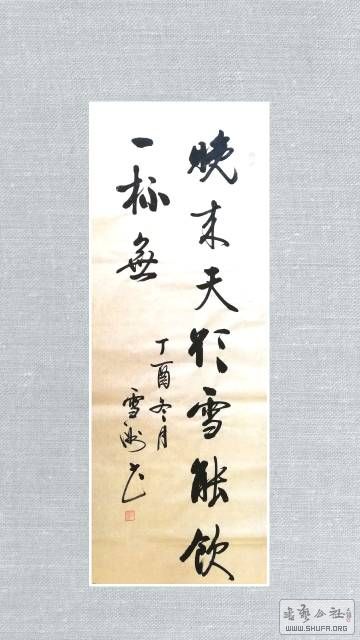 晚来天欲雪能飲
一杯無
丁酉冬月
雪
书艺公社
WWW.SHUFA.ORG